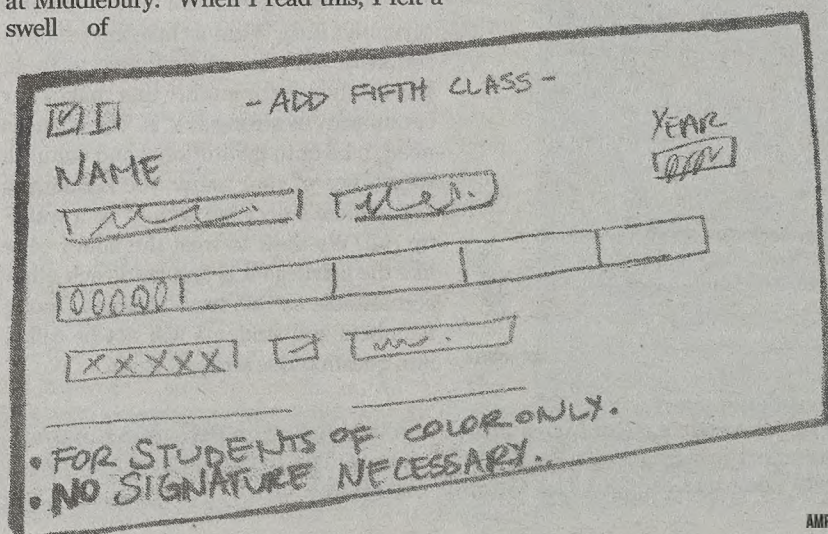 at Middlebury. When I read this, I felt a
swell of
- ADD FIFTH CLASS -
YEAR
NAME
00000
XXXXX
• FOR STUDENTS OF COLOR ONLY.
• NO SIGNATURE NECESSARY.